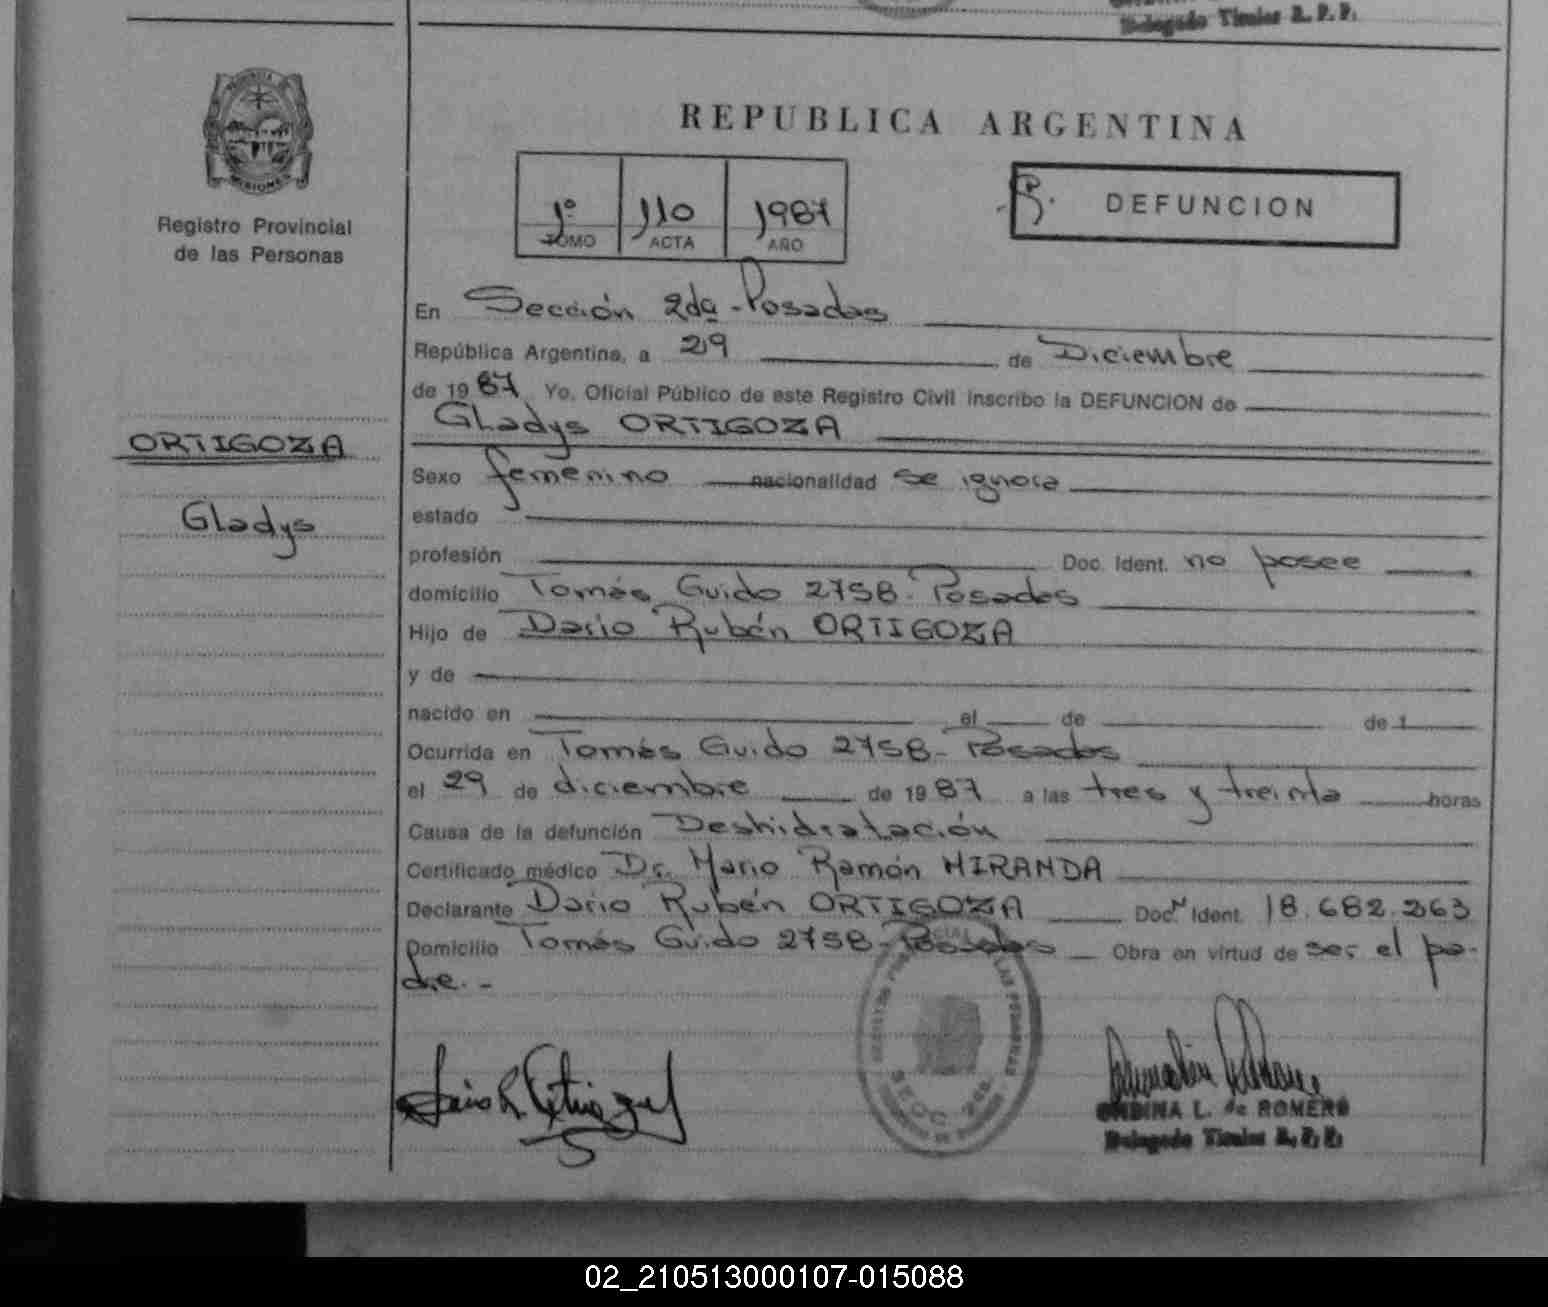 Delegado Titular R. P. P.
PROVINCIA
MISIONES
Registro Provincial
de las Personas
REPUBLICA ARGENTINA
1º 110 1987
TOMO ACTA AÑO
DEFUNCION
En Sección 2da - Posadas
República Argentina, a 29 de Diciembre
de 1987 Yo, Oficial Público de este Registro Civil inscribo la DEFUNCION de
Gladys ORTIGOZA
ORTIGOZA
Gladys
Sexo femenino nacionalidad se ignora
estado
profesión Doc. Ident. no posee
domicilio Tomás Guido 2758 - Posadas
Hijo de Dario Rubén ORTIGOZA
y de
nacido en el de de 1
Ocurrida en Tomás Guido 2758 - Posadas
el 29 de diciembre de 1987 a las tres y treinta horas
Causa de la defunción Deshidratación
Certificado médico Dr. Mario Ramón MIRANDA
Declarante Dario Rubén ORTIGOZA Doc. Ident. 18.682.263
Domicilio Tomás Guido 2758 - Posadas Obra en virtud de ser el pa-
dre. -
SECC. 2da.
ONDINA L. de ROMERO
Delegado Titular R. P. P.
02_210513000107-015088